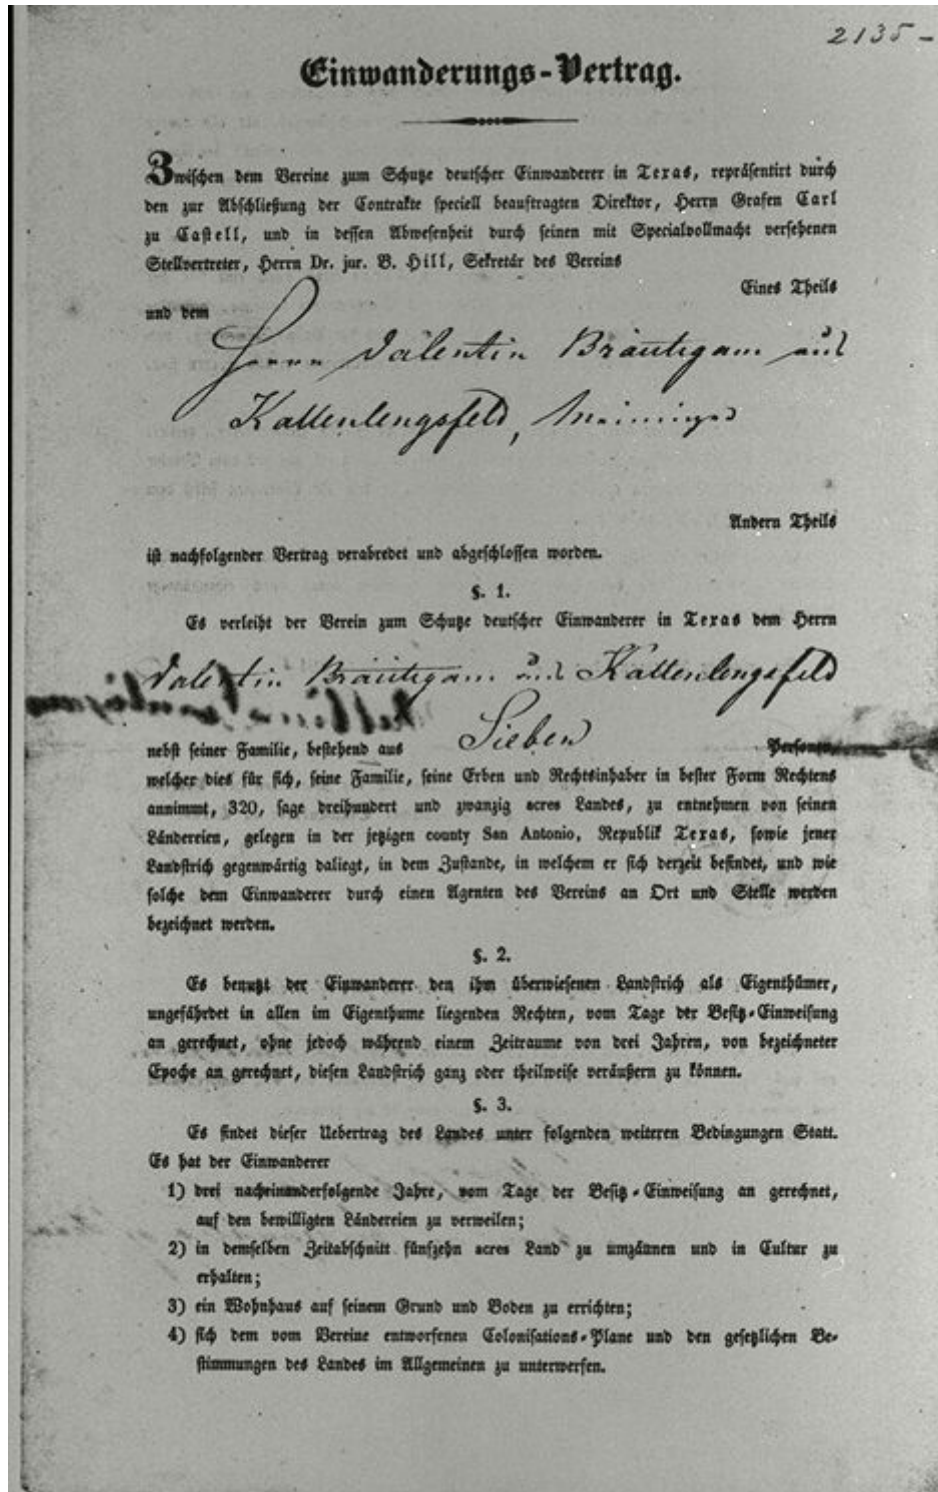 2135-
Einwanderungs-Vertrag.
Zwischen dem Vereine zum Schutze deutscher Einwanderer in Texas, repräsentirt durch
den zur Abschließung der Contrakte speciell beauftragten Direktor, Herrn Grafen Carl
zu Castell, und in dessen Abwesenheit durch seinen mit Specialvollmacht versehenen
Stellvertreter, Herrn Dr. jur. B. Hill, Sekretär des Vereins
Eines Theils
und dem
Herrn Valentin Bräutigam aus
Kaltenlengsfeld, Meiningen
Andern Theils
ist nachfolgender Vertrag verabredet und abgeschlossen worden.
§. 1.
Es verleiht der Verein zum Schutze deutscher Einwanderer in Texas dem Herrn
Valentin Bräutigam aus Kaltenlengsfeld
nebst seiner Familie, bestehend aus Sieben Personen,
welcher dies für sich, seine Familie, seine Erben und Rechtsinhaber in bester Form Rechtens
annimmt, 320, sage dreihundert und zwanzig acres Landes, zu entnehmen von seinen
Ländereien, gelegen in der jetzigen county San Antonio, Republik Texas, sowie jener
Landstrich gegenwärtig daliegt, in dem Zustande, in welchem er sich derzeit befindet, und wie
solche dem Einwanderer durch einen Agenten des Vereins an Ort und Stelle werden
bezeichnet werden.
§. 2.
Es benutzt der Einwanderer den ihm überwiesenen Landstrich als Eigenthümer,
ungefährdet in allen im Eigenthume liegenden Rechten, vom Tage der Besitz-Einweisung
an gerechnet, ohne jedoch während einem Zeitraume von drei Jahren, von bezeichneter
Epoche an gerechnet, diesen Landstrich ganz oder theilweise veräußern zu können.
§. 3.
Es findet dieser Uebertrag des Landes unter folgenden weiteren Bedingungen Statt.
Es hat der Einwanderer
1) drei nacheinanderfolgende Jahre, vom Tage der Besitz-Einweisung an gerechnet,
auf den bewilligten Ländereien zu verweilen;
2) in demselben Zeitabschnitt fünfzehn acres Land zu umzäunen und in Cultur zu
erhalten;
3) ein Wohnhaus auf seinem Grund und Boden zu errichten;
4) sich dem vom Vereine entworfenen Colonisations-Plane und den gesetzlichen Be-
stimmungen des Landes im Allgemeinen zu unterwerfen.